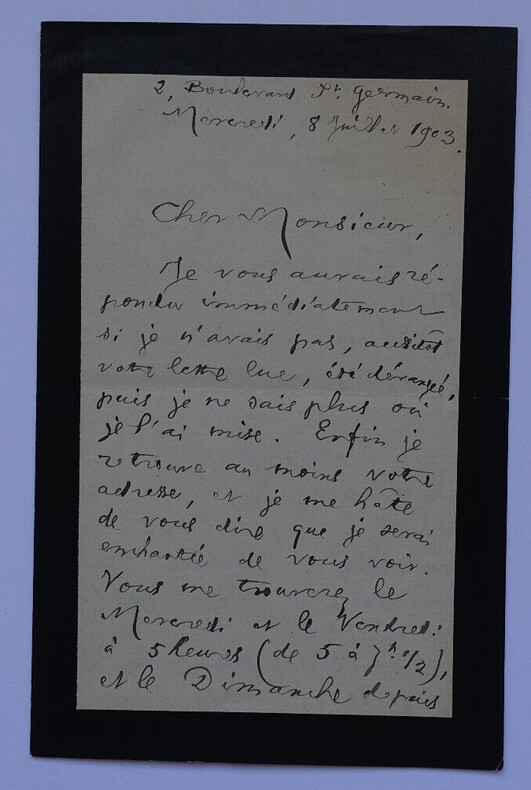 2, Boulevard St. Germain.
Mercredi, 8 Juillet 1903.
Cher Monsieur,
Je vous aurais ré-
pondu immédiatement
si je n'avais pas, aussitôt
votre lettre lue, été dérangé,
puis je ne sais plus où
je l'ai mise. Enfin je
retrouve au moins votre
adresse, et je me hâte
de vous dire que je serai
enchantée de vous voir.
Vous me trouverez le
Mercredi et le Vendredi
à 5 heures (de 5 à 7h 1/2),
et le Dimanche depuis